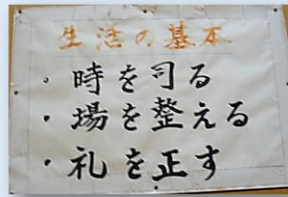 生活の基本
・時を司る
・場を整える
・礼を正す